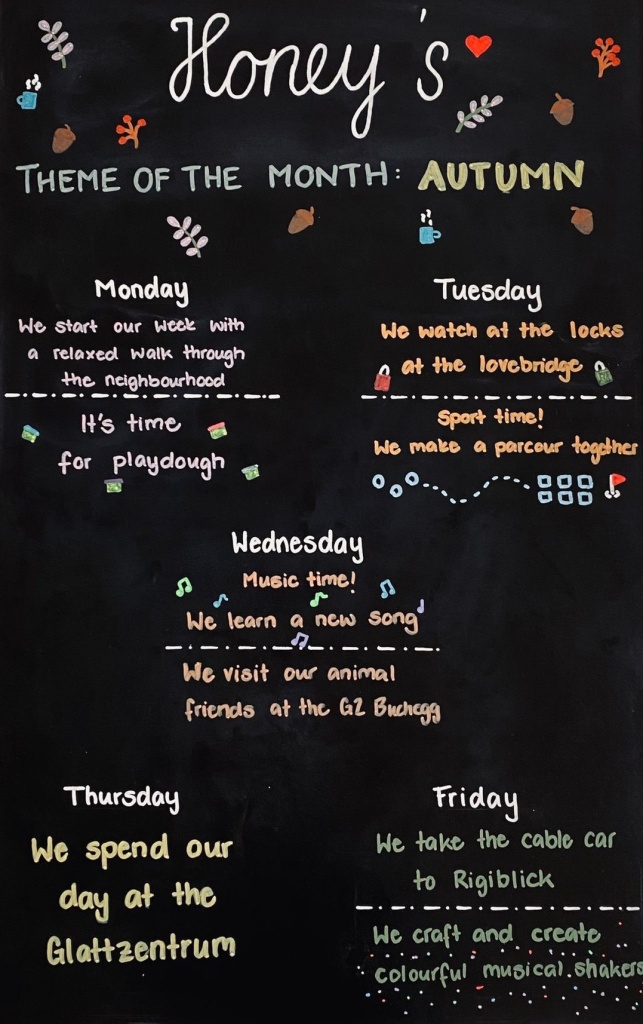 Honey's
THEME OF THE MONTH: AUTUMN
Monday
We start our week with
a relaxed walk through
the neighbourhood
It's time
for playdough
Tuesday
We watch at the locks
at the lovebridge
Sport time!
We make a parcour together
Wednesday
Music time!
We learn a new song
We visit our animal
friends at the GZ Buchegg
Thursday
We spend our
day at the
Glattzentrum
Friday
We take the cable car
to Rigiblick
We craft and create
colourful musical shakers